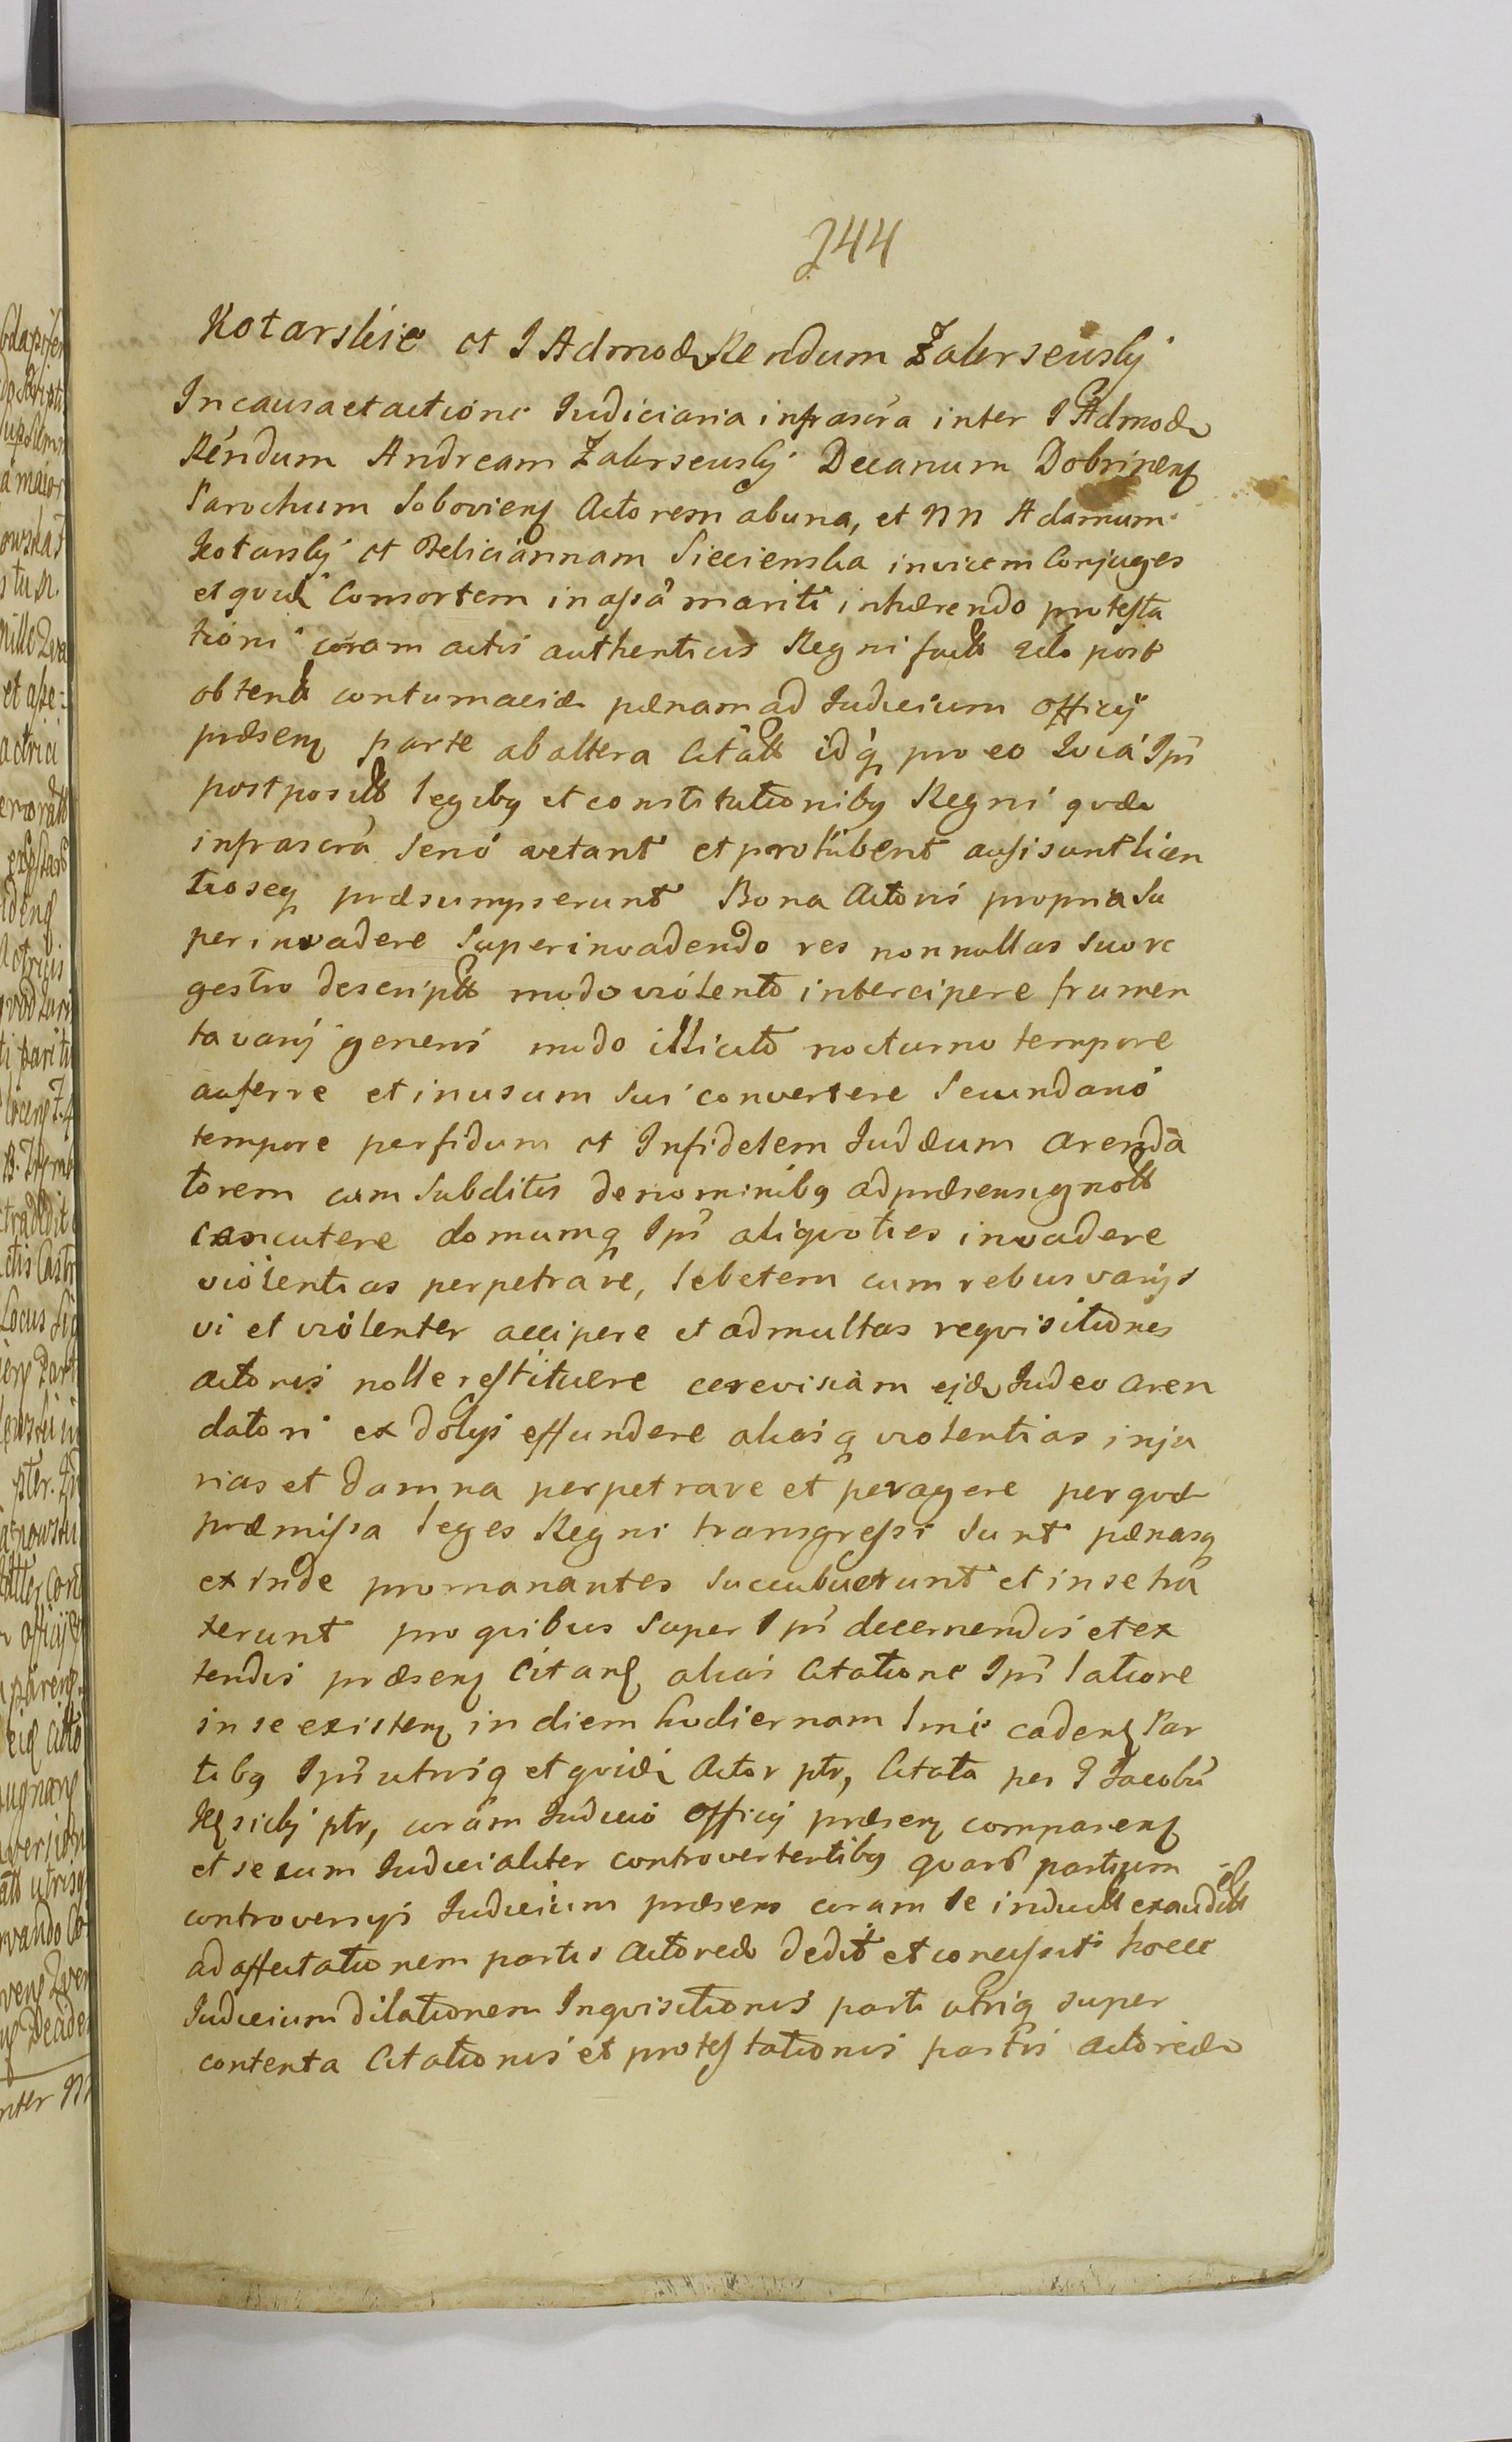 244
Kotarskie et I Admodm Rendum Zakrseuskj
In causa et actione Iudiciaria infrascra inter I Admodm
Rendum Andream Zakrseuskj Decanum Dobrinens
Parochum Soboviens Actorem ab una, et NN Adamum
Kotarskj et Feliciannam Siecienska invicem Conjuges
et quid Consortem in assa mariti inhærendo protesta
tioni coram actis authenticis Regni fact acto post
obtent contumaciæ pænam ad Iudicium Officij
præsens parte ab altera Citatt idq pro eo Quia Ipi
postpositt legibq et constitutionibq Regni quæ
infrascra serio vetant et prohibent ausi sunt licen
tioseq præsumpserunt Bona Actoris propria Su
perinvadere Superinvadendo res nonnullas Suo re
gestro descriptt modo violento intercipere frumen
ta varij generis modo illicito nocturno tempore
auferre et in usum Sui convertere Secundario
tempore perfidum et Infidelem Iudæum Arenda
torem cum Subditis de nominibq ad præsens ignott
concutere domumq Ipi aliquoties invadere
violentias perpetrare, lebetem cum rebus varijs
vi et violenter accipere et ad multas requisitiones
actoris nolle restituere cerevisiam ejdm Iudeo Aren
datori ex dolijs effundere aliasq violentias inju
rias et damna perpetrare et peragere per quæ
præmissa leges Regni transgressi Sunt pænasq
ex inde promanantes Succubuerunt et in se tra
xerunt pro quibus Super Ipi decernendis et ex
tendis præsens Citans alias Citatione Ipi latiore
in se existens in diem hodiernam lmé cadens Par
tibq Ipi utrisq et quidi Actor ptr, Citata per I Iacobu
Kęsickj ptr, coram Iudicio Officij præsens comparens
et secum Iudicialiter controvertentibq quars partium
controversijs Iudicium præsens coram Se induatt exaudittq
ad affectationem partis Actoreæ dedit et concessit hocce
Iudicium dilationem Inquisitionis parti utriq super
contenta Citationis et protestationis partis Actoreæ